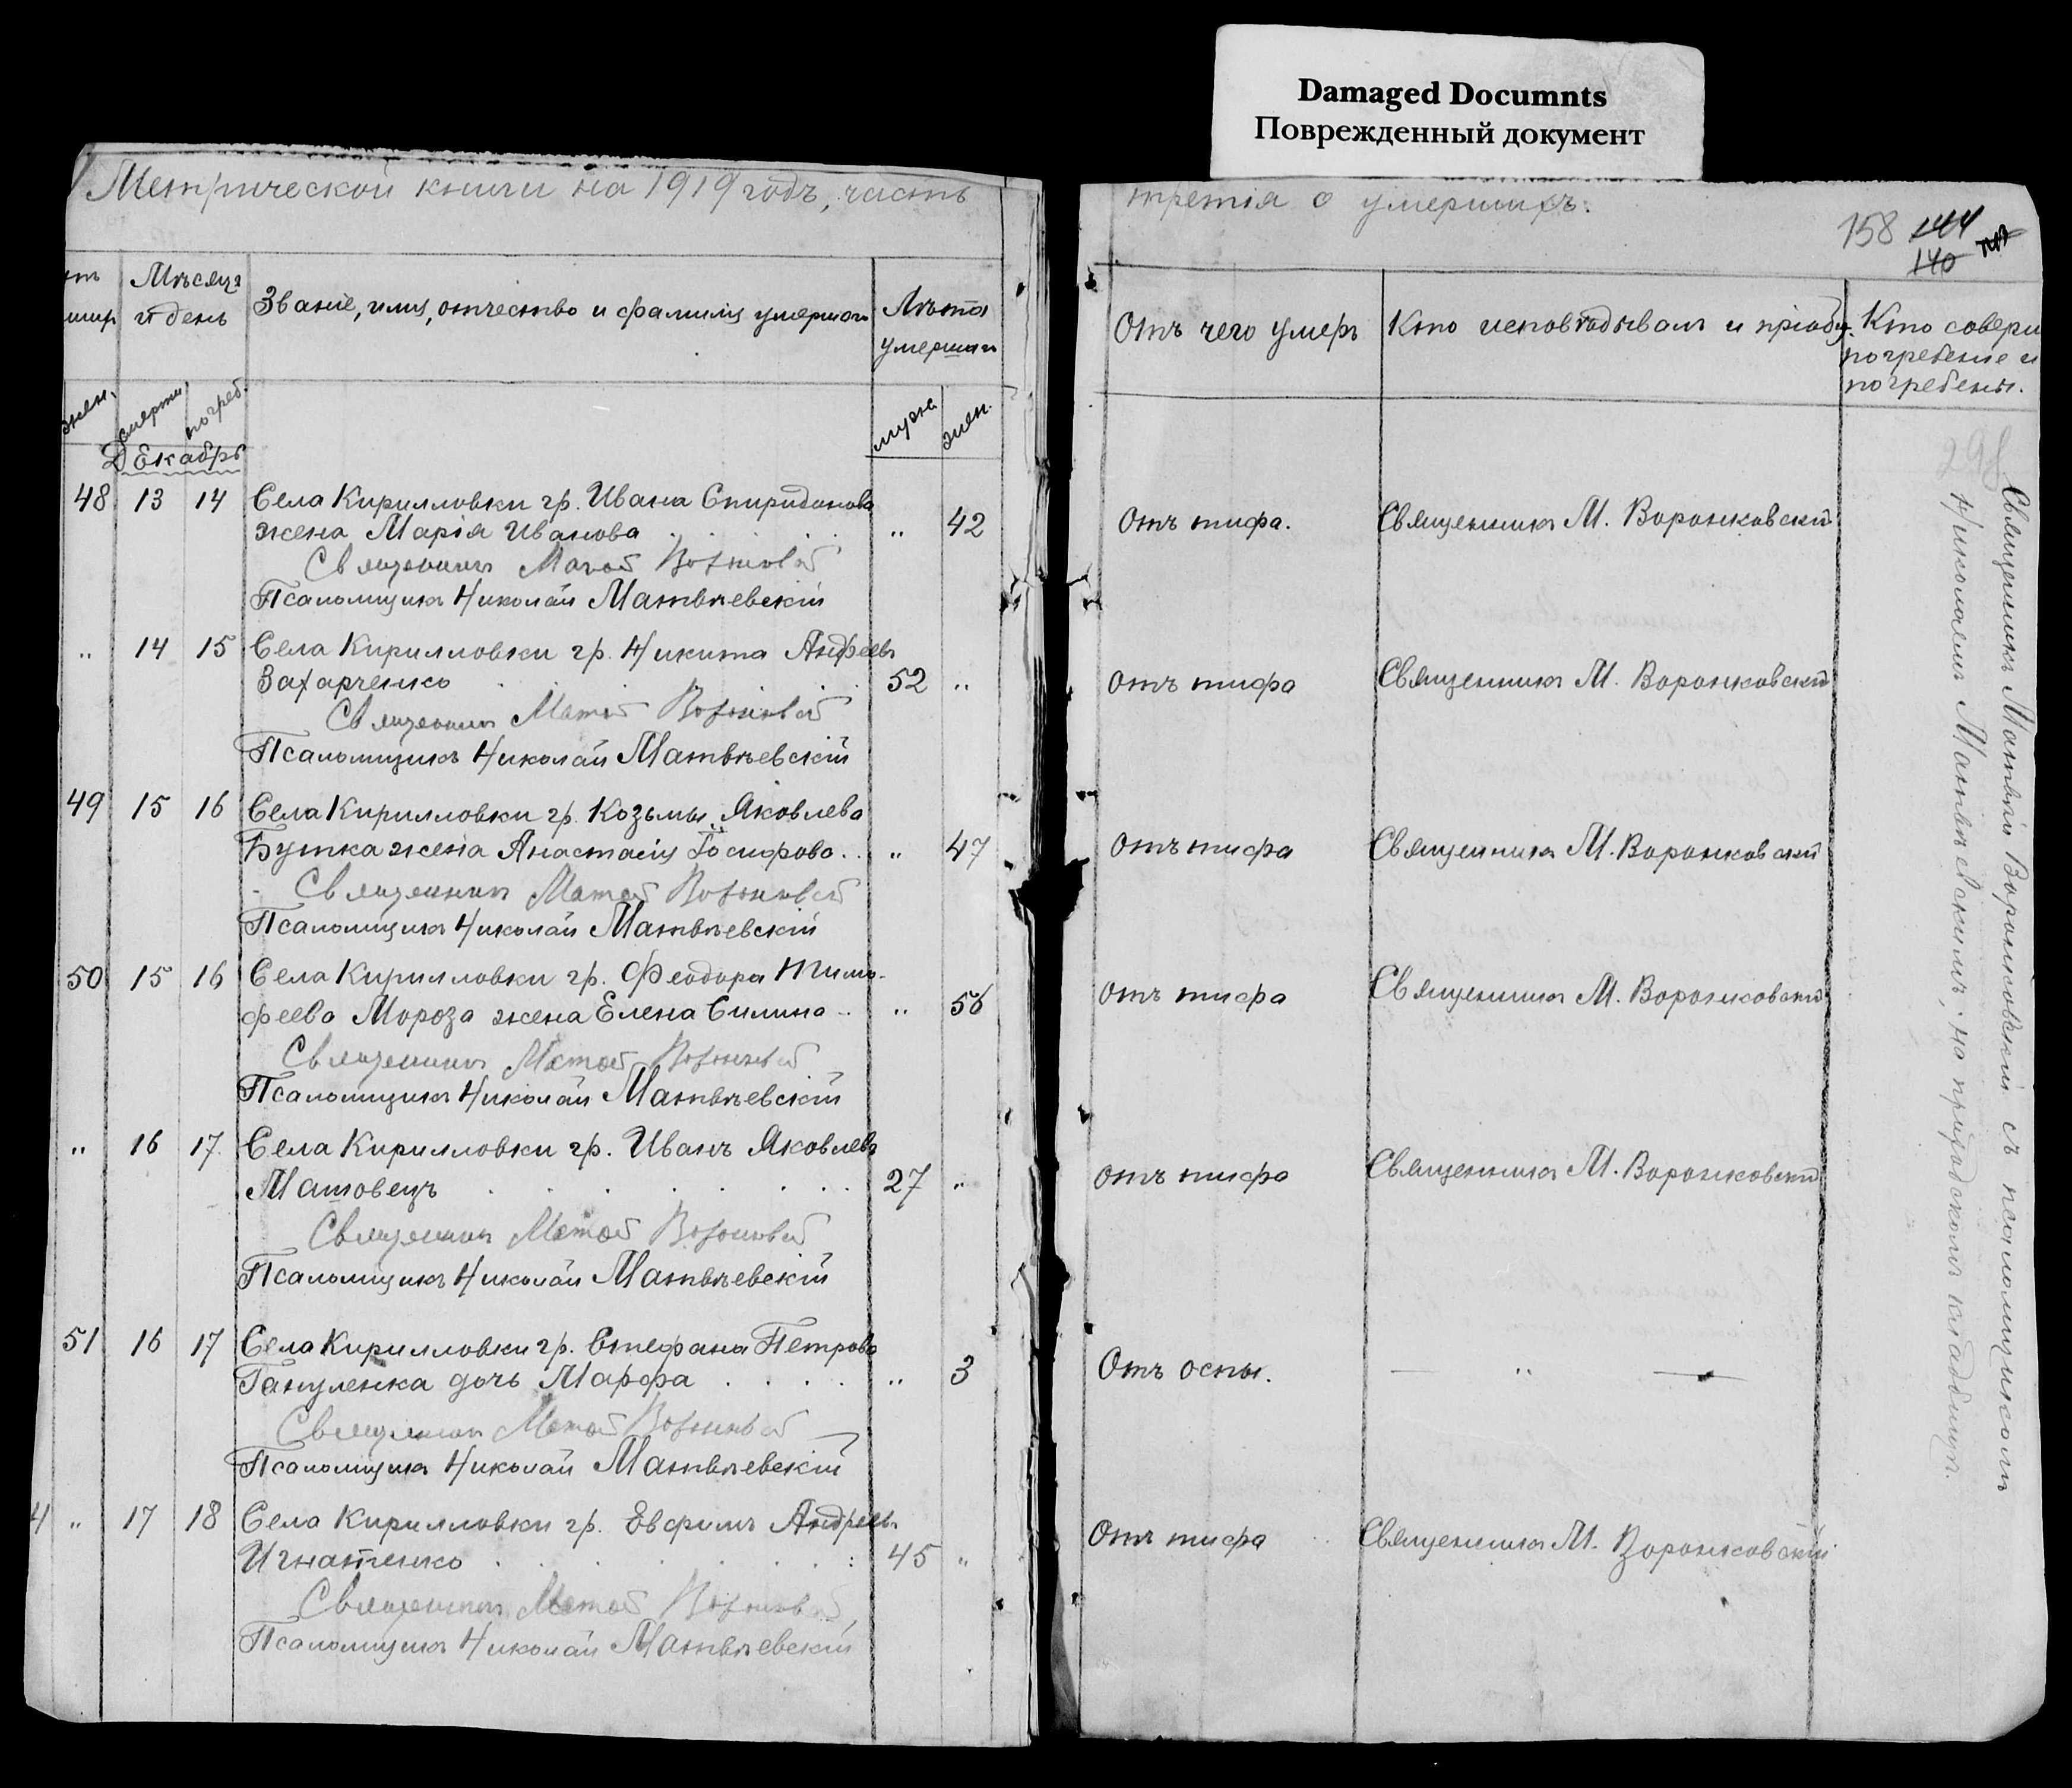 Damaged Documnts
Поврежденный документ
Метрической книги на 1919 годъ, часть
третія о умершихъ.
158 144
140
Мѣсяцъ
и день
Званіе, имя, отчество и фамилія умершаго
Лѣта
умершаго
Отъ чего умеръ
Кто исповѣдывалъ и пріобщ.
Кто соверш
погребеніе и
погребены.
жен.
смерти
погреб.
муж.
жен.
Декабрь
48 13 14 Села Кирилловки гр. Ивана Спиридонова
жена Марія Иванова . . . . „ 42
Отъ тифа. Священникъ М. Воронковскій
Священникъ Матвѣй Воронковскій
Псаломщикъ Николай Матвѣевскій
„ 14 15 Села Кирилловки гр. Никита Андреевъ
Захарченко . . . . 52 „
отъ тифа Священникъ М. Воронковскій
Священникъ Матвѣй Воронковскій
Псаломщикъ Николай Матвѣевскій
49 15 16 Села Кирилловки гр. Козьмы Яковлева
Бутка жена Анастасія Іосифова . . „ 47
Отъ тифа Священникъ М. Воронковскій
Священникъ Матвѣй Воронковскій
Псаломщикъ Николай Матвѣевскій
50 15 16 Села Кирилловки гр. Феодора Тимо-
феева Мороза жена Елена Силина .. „ 56
Отъ тифа Священникъ М. Воронковскій
Священникъ Матвѣй Воронковскій
Псаломщикъ Николай Матвѣевскій
„ 16 17 Села Кирилловки гр. Иванъ Яковлевъ
Матовецъ . . . . . . . 27 „
Отъ тифа Священникъ М. Воронковскій
Священникъ Матвѣй Воронковскій
Псаломщикъ Николай Матвѣевскій
51 16 17 Села Кирилловки гр. Стефана Петрова
Гануленка дочь Марфа . . . . „ 3
Отъ оспы. — „ —
Священникъ Матвѣй Воронковскій
Псаломщикъ Николай Матвѣевскій
4 „ 17 18 Села Кирилловки гр. Евфимъ Андреевъ
Игнатенко . . . . . . . : 45 „
Отъ тифа Священникъ М. Воронковскій
Священникъ Матвѣй Воронковскій
Псаломщикъ Николай Матвѣевскій
Священникъ Матвѣй Воронковскій съ псаломщикомъ
Николаемъ Матвѣевскимъ, на приходскомъ кладбищѣ.